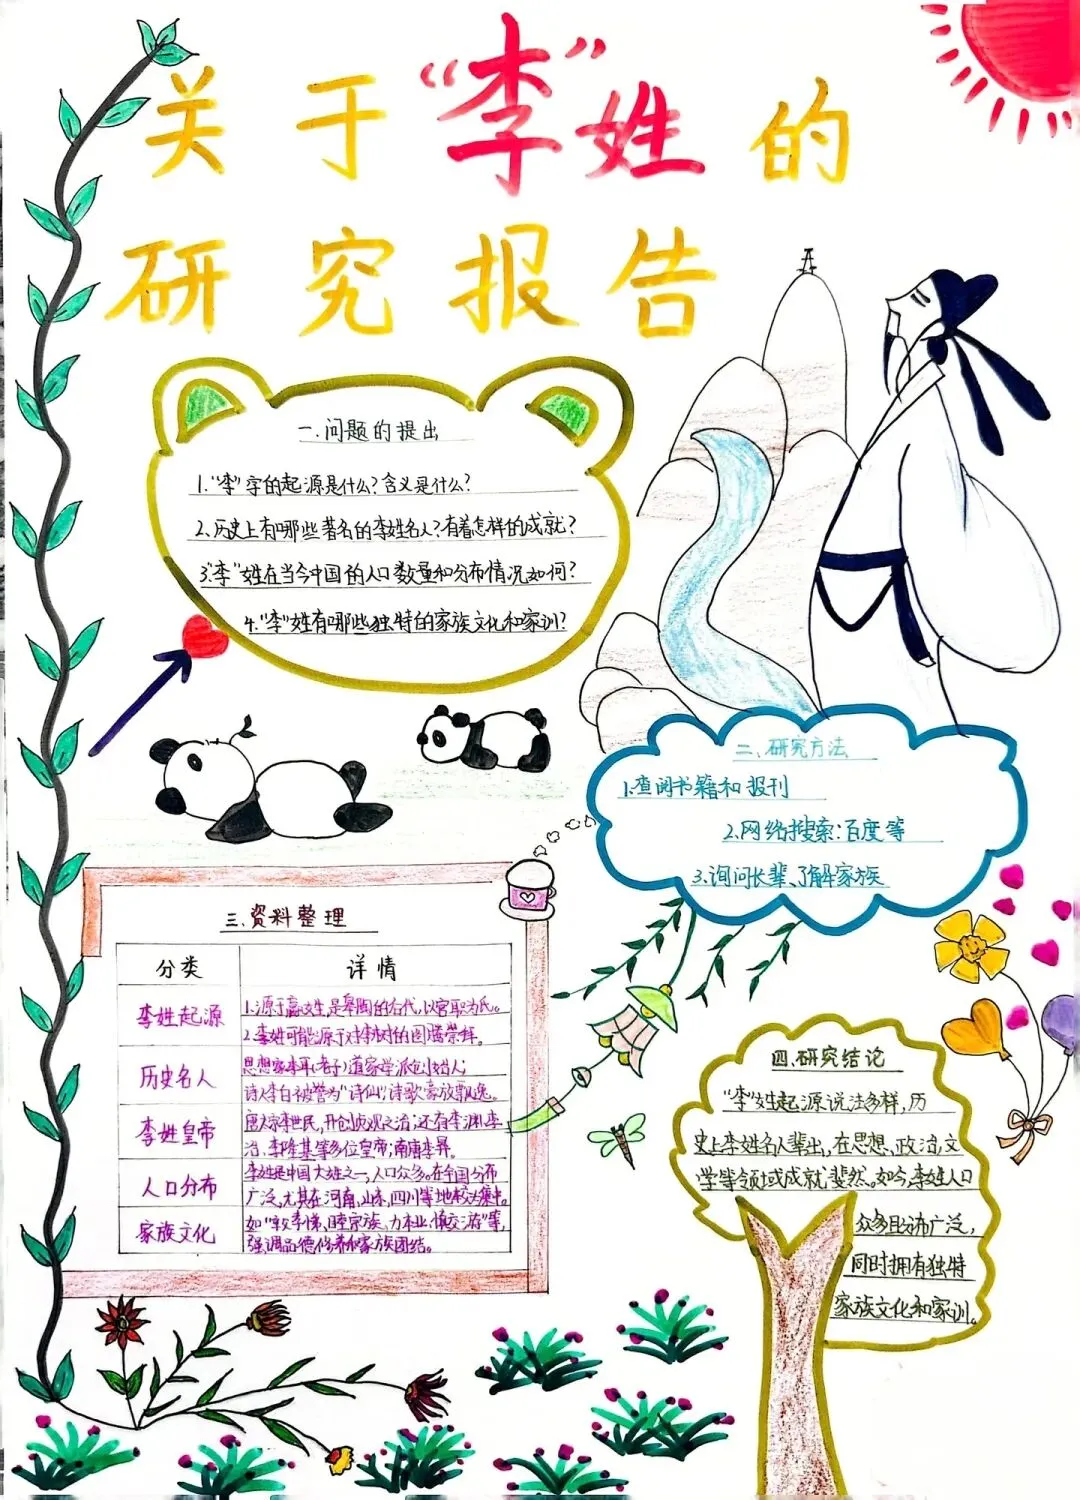 关于“李”姓的
研究报告
一.问题的提出
1.“李”字的起源是什么?含义是什么?
2.历史上有哪些著名的李姓名人?有着怎样的成就?
3.“李”姓在当今中国的人口数量和分布情况如何?
4.“李”姓有哪些独特的家族文化和家训?
二、研究方法
1.查阅书籍和报刊
2.网络搜索:百度等
3.询问长辈、了解家族
三.资料整理
分类 详情
李姓起源 1.源于嬴姓,是皋陶的后代,以官职为氏。
2.李姓可能源于对李树的图腾崇拜。
历史名人 思想家李耳(老子)道家学派创始人;
诗人李白被誉为“诗仙”,诗歌豪放飘逸。
李姓皇帝 唐太宗李世民,开创贞观之治;还有李渊、李
治、李隆基等多位皇帝;南唐李昪。
人口分布 李姓是中国大姓之一,人口众多。在全国分布
广泛,尤其在河南、山东、四川等地较为集中。
家族文化 如“敦孝悌、睦宗族、力本业、慎交游”等,
强调品德修养和家族团结。
四.研究结论
“李”姓起源说法多样,历
史上李姓名人辈出,在思想、政治、文
学等领域成就斐然。如今,李姓人口
众多且分布广泛,
同时拥有独特
家族文化和家训。